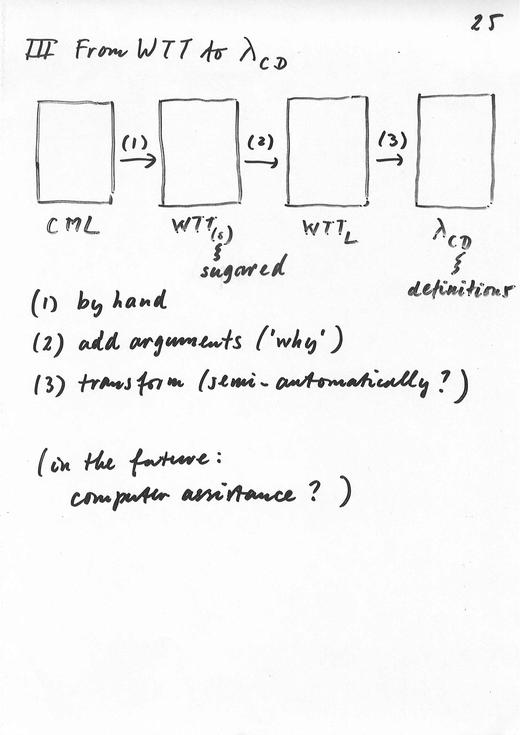 25
III From WTT to λCD
(1) (2) (3)
CML WTT(s) WTTL λCD
sugared
definitions
(1) by hand
(2) add arguments ('why')
(3) transform (semi-automatically?)
(in the future:
computer assistance?)